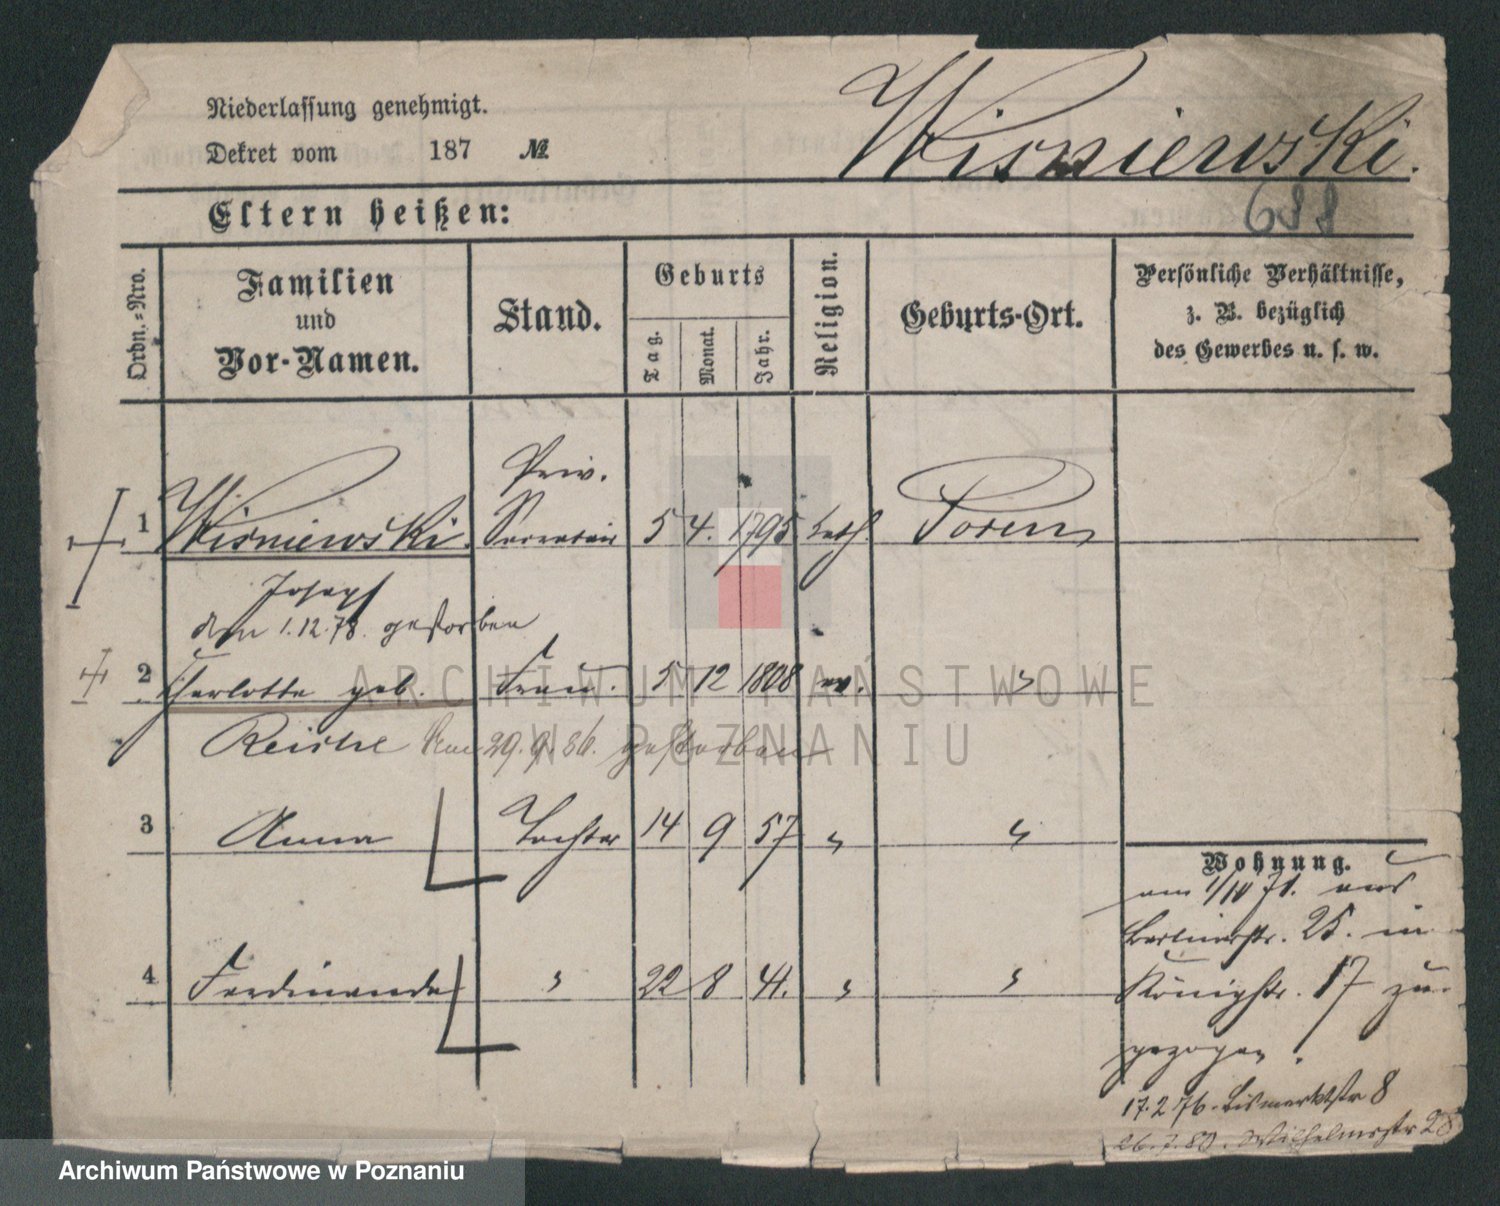 Niederlassung genehmigt.
Dekret vom 187 №
Wisniewski.
688
Eltern heißen:
Ordn.-Nro.
Familien und Vor-Namen.
Stand.
Geburts
Tag.
Monat.
Jahr.
Religion.
Geburts-Ort.
Persönliche Verhältnisse,
z. B. bezüglich
des Gewerbes u. s. w.
Priv.
1 Wisniewski. Secretair 5 4. 1795 kath. Posen
Joseph
den 1.12.78. gestorben
2 Charlotte geb. Frau. 5. 12 1808 ev. "
Reiche am 29.9.86. gestorben
3 Anna Tochter 14 9 57 " "
4 Ferdinanda " 22 8 41. " "
Wohnung.
am 1/10 71. aus
Berlinerstr. 25. in
Königstr. 17 zu-
gezogen.
17.2 76. Bismarckstr 8
26.7.80. Wilhelmstr 28
ARCHIWUM PAŃSTWOWE
W POZNANIU
Archiwum Państwowe w Poznaniu